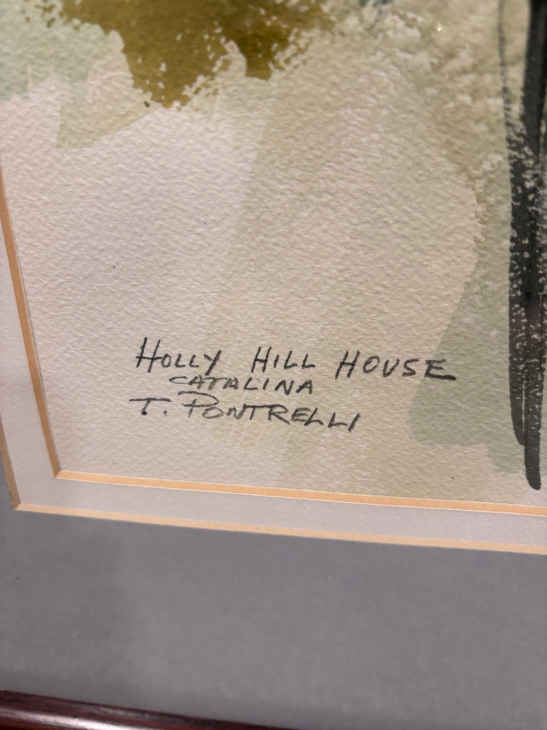 HOLLY HILL HOUSE
CATALINA
T. PONTRELLI